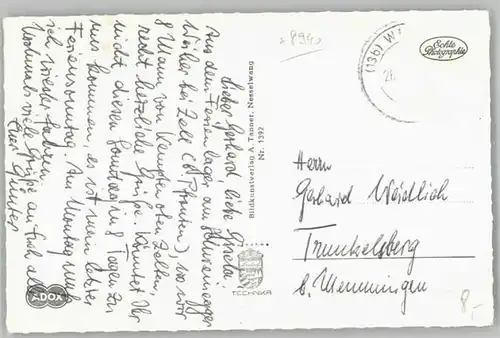 Lieber Gerhard, liebe Gisela!
Aus dem Ferienlager am
Weiher bei Zell (Pfronten), wo wir
8 Mann von Kempten oben zelten,
recht herzliche Grüße. Könntet Ihr
nicht diesen Sonntag in 8 Tagen zu
uns kommen, es ist mein letzter
Feriensonntag. Am Montag muß
ich wieder fahren.
Nochmals viele Grüße an Euch alle
Euer Günter
Bildkunstverlag A. Tanner, Nesselwang
Nr. 1392
TECHNIKA
ADOX
8940
(13b) W
Echte
Photographie
Herrn
Gerhard Weidlich
Trunkelsberg
b. Memmingen
8,-